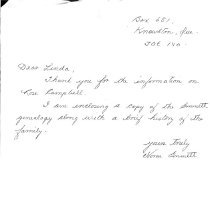 Box 651,
Knowlton, Que.
JOE 1V0.
Dear Linda,
Thank you for the information on
Rose Campbell.
I am enclosing a copy of the
genealogy along with a brief history of the
family.
Yours truly